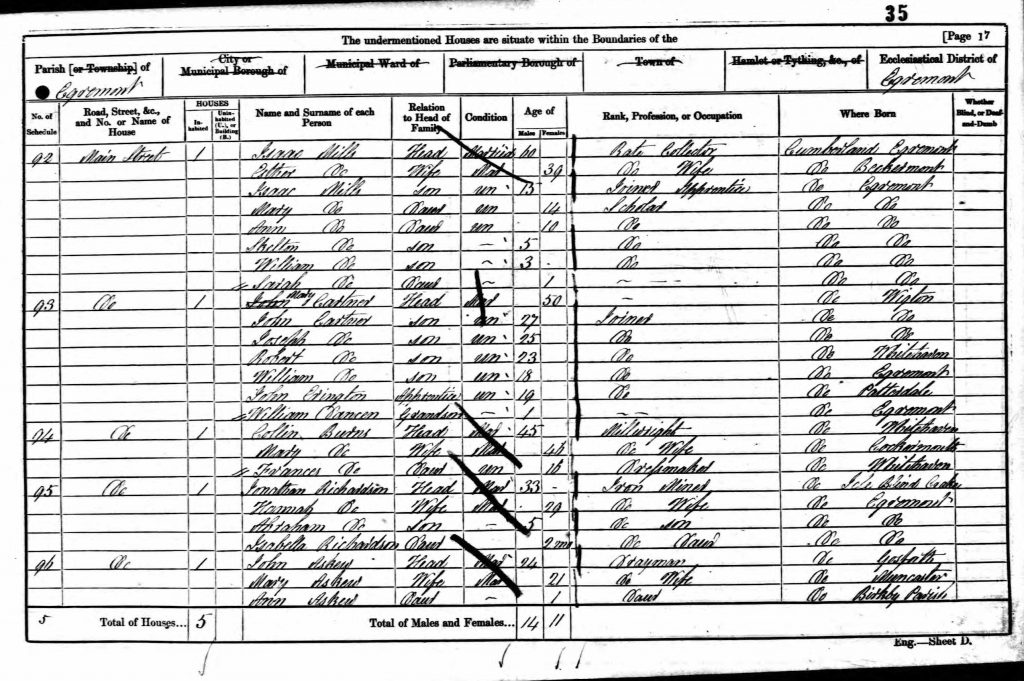 35
The undermentioned Houses are situate within the Boundaries of the [Page 17
Parish [or Township] of City or Municipal Borough of Municipal Ward of Parliamentary Borough of Town of Hamlet or Tything, &c., of Ecclesiastical District of
Egremont Egremont
No. of Schedule Road, Street, &c., and No. or Name of House HOUSES Inhabited Uninhabited (U.), or Building (B.) Name and Surname of each Person Relation to Head of Family Condition Age of Males Females Rank, Profession, or Occupation Where Born Whether Blind, or Deaf-and-Dumb
92 Main Street 1 Isaac Mills Head Married 60 Rate Collector Cumberland Egremont
Esther Do Wife Mar 39 Do Wife Do Beckermont
Isaac Mills son un 15 Joiner Apprentice Do Egremont
Mary Do Daur un 14 Scholar Do Do
Ann Do Daur un 10 Do Do Do
Skelton Do son – 5 Do Do Do
William Do son – 3 Do Do Do
Sarah Do Daur – 1 Do Do
93 Do 1 John Mary Cartner Head Mar 50 – Do Wigton
John Cartner son un 27 Joiner Do Do
Joseph Do son un 25 Do Do Do
Robert Do son un 23 Do Do Whitehaven
William Do son un 18 Do Do Egremont
John Erington Apprentice un 19 Do Do Patterdale
William Dancen Grandson – 1 – – Do Egremont
94 Do 1 Collin Burns Head Mar 45 Millwright Do Whitehaven
Mary Do Wife Mar 46 Do Wife Do Cockermouth
Frances Do Daur un 16 Dressmaker Do Whitehaven
95 Do 1 Jonathan Richardson Head Mar 33 Iron Miner Do
Hannah Do Wife Mar 29 Do Wife Do Egremont
Abraham Do son – 5 Do son Do Do
Isabella Richardson Daur 2 mo Do Daur Do Do
96 Do 1 John Askew Head Mar 24 Drayman Do Gosforth
Mary Askew Wife Mar 21 Do Wife Do Muncaster
Ann Askew Daur – 1 Daur Do Birkby Parish
5 Total of Houses... 5 Total of Males and Females... 14 11
Eng.—Sheet D.